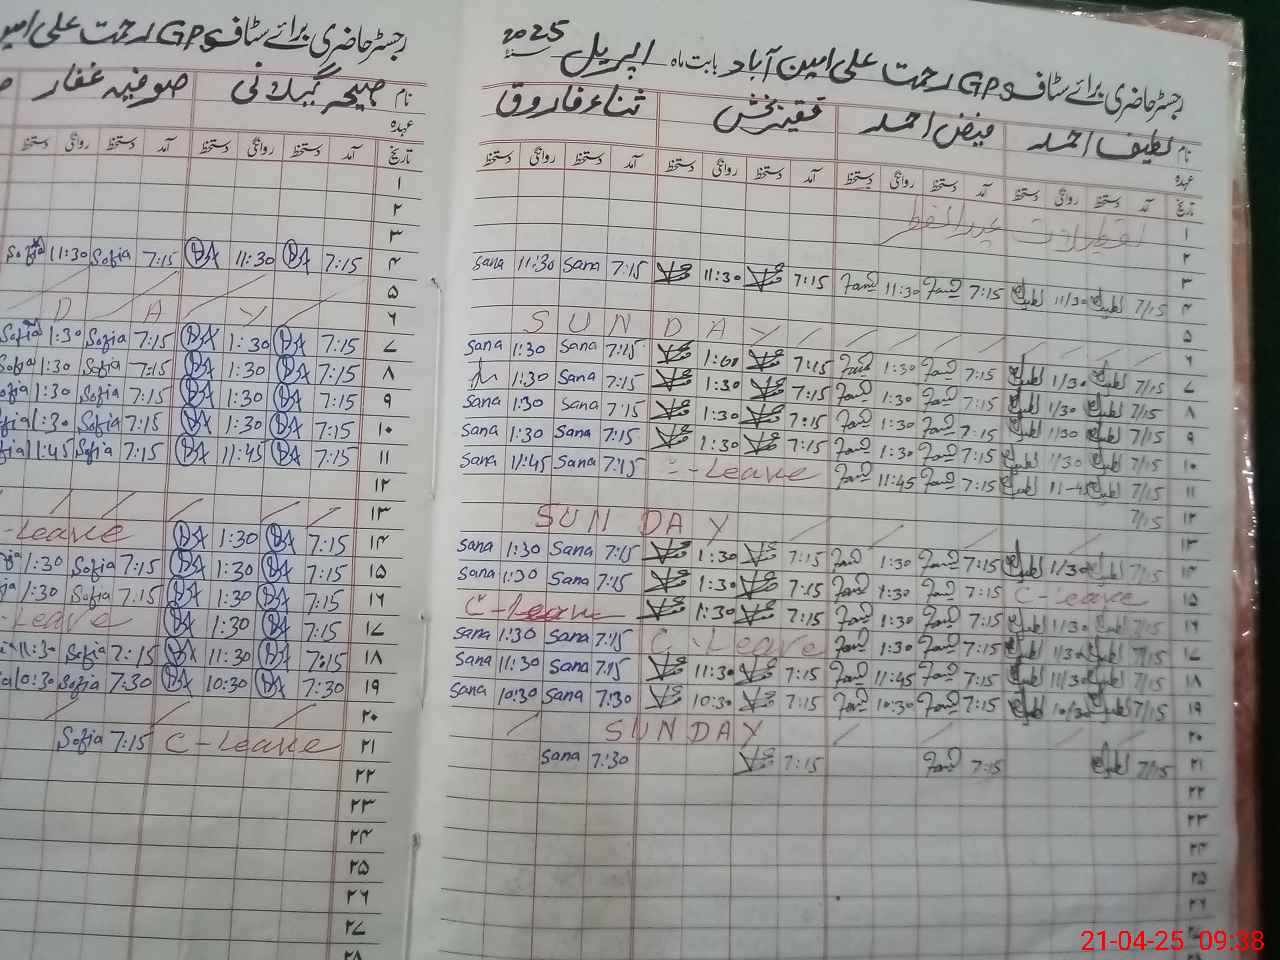 رجسٹر حاضری برائے سٹاف GPS رحمت علی امین آباد بابت ماہ اپریل 2025
نام لطیف احمد فیض احمد فقیر بخش ثناء فاروق
عہدہ
تاریخ آمد دستخط روانگی دستخط آمد دستخط روانگی دستخط آمد دستخط روانگی دستخط آمد دستخط روانگی دستخط
۱
۲
۳
۴ 7/15 لطیف 11/30 لطیف 7:15 11:30 7:15 11:30 7:15 Sana 11:30 Sana
۵
۶ SUNDAY
۷ 7/15 لطیف 1/30 لطیف 7:15 1:30 7:15 1:00 7:15 Sana 1:30 Sana
۸ 7/15 لطیف 1/30 لطیف 7:15 1:30 7:15 1:30 7:15 Sana 1:30
۹ 7/15 لطیف 1/30 لطیف 7:15 1:30 7:15 1:30 7:15 Sana 1:30 Sana
۱۰ 7/15 لطیف 1/30 لطیف 7:15 1:30 7:15 1:30 7:15 Sana 1:30 Sana
۱۱ 7/15 لطیف 11-45 لطیف 7:15 11:45 C-Leave 7:15 Sana 11:45 Sana
۱۲ 7/15
۱۳ SUNDAY
۱۴ 7/15 لطیف 1/30 لطیف 7:15 1:30 7:15 1:30 7:15 Sana 1:30 Sana
۱۵ C-leave 7:15 1:30 7:15 1:30 7:15 Sana 1:30 Sana
۱۶ 7/15 لطیف 11/30 لطیف 7:15 1:30 7:15 1:30 C-Leave
۱۷ 7/15 لطیف 1/30 لطیف 7:15 1:30 C-Leave 7:15 Sana 1:30 Sana
۱۸ 7/15 لطیف 11/30 لطیف 7:15 11:45 7:15 11:30 7:15 Sana 11:30 Sana
۱۹ 7/15 لطیف 10/30 لطیف 7:15 10:30 7:15 10:30 7:30 Sana 10:30 Sana
۲۰ SUNDAY
۲۱ 7/15 لطیف 7:15 7:15 7:30 Sana
۲۲
۲۳
۲۴
۲۵
۲۶
۲۷
رجسٹر حاضری برائے سٹاف GPS رحمت علی امین
نام صبیحہ گیلانی صوفیہ غفار
عہدہ
تاریخ آمد دستخط روانگی دستخط آمد دستخط روانگی دستخط
۱
۲
۳
۴ 7:15 11:30 7:15 Sofia 11:30 Sofia
۵
۶ DAY
۷ 7:15 1:30 7:15 Sofia 1:30 Sofia
۸ 7:15 1:30 7:15 Sofia 1:30 Sofia
۹ 7:15 1:30 7:15 Sofia 1:30
۱۰ 7:15 1:30 7:15 Sofia 1:30
۱۱ 7:15 11:45 7:15 Sofia 1:45
۱۲
۱۳
۱۴ 7:15 1:30 -Leave
۱۵ 7:15 1:30 7:15 Sofia 1:30
۱۶ 7:15 1:30 7:15 Sofia 1:30
۱۷ 7:15 1:30 -Leave
۱۸ 7:15 11:30 7:15 Sofia 11:30
۱۹ 7:30 10:30 7:30 Sofia 10:30
۲۰
۲۱ C-Leave 7:15 Sofia
۲۲
۲۳
۲۴
۲۵
۲۶
۲۷
۲۸
21-04-25 09:38